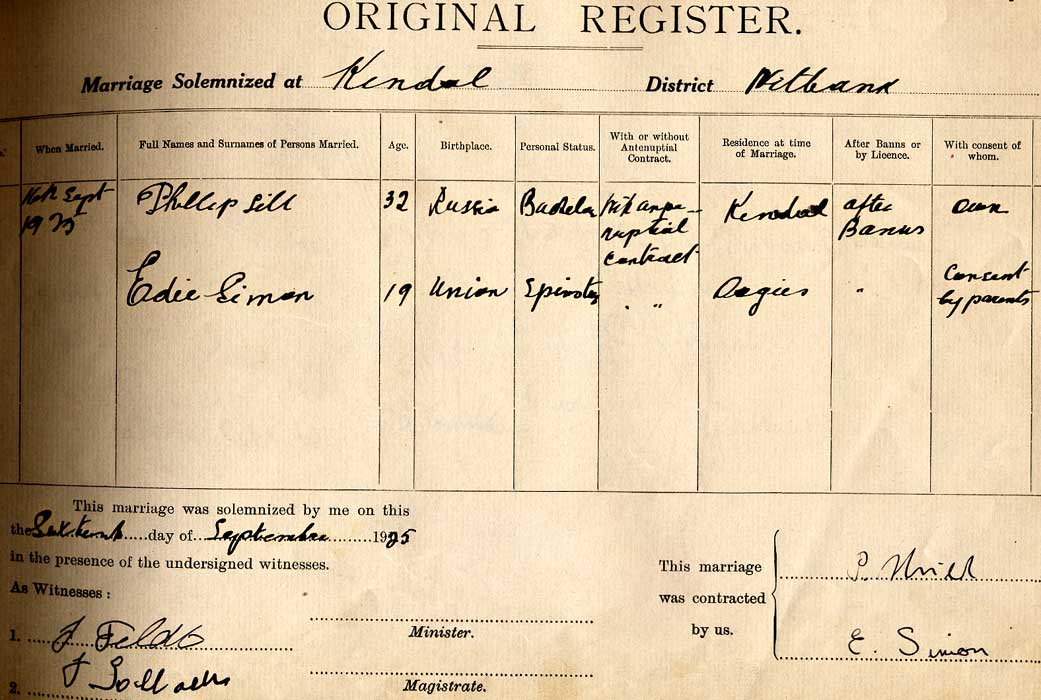 ORIGINAL REGISTER.
Marriage Solemnized at Kendal District Witbank
When Married. Full Names and Surnames of Persons Married. Age. Birthplace. Personal Status. With or without Antenuptial Contract. Residence at time of Marriage. After Banns or by Licence. With consent of whom.
16th Sept 1925 Phillip Sill 32 Russia Bachelor contract Kendal after Banns own
Edie Simon 19 Union Spinster " " Aegies " Consent by parents
This marriage was solemnized by me on this
the day of September 1925
in the presence of the undersigned witnesses.
As Witnesses:
This marriage was contracted by us.
1. Minister.
E. Simon
2. Magistrate.